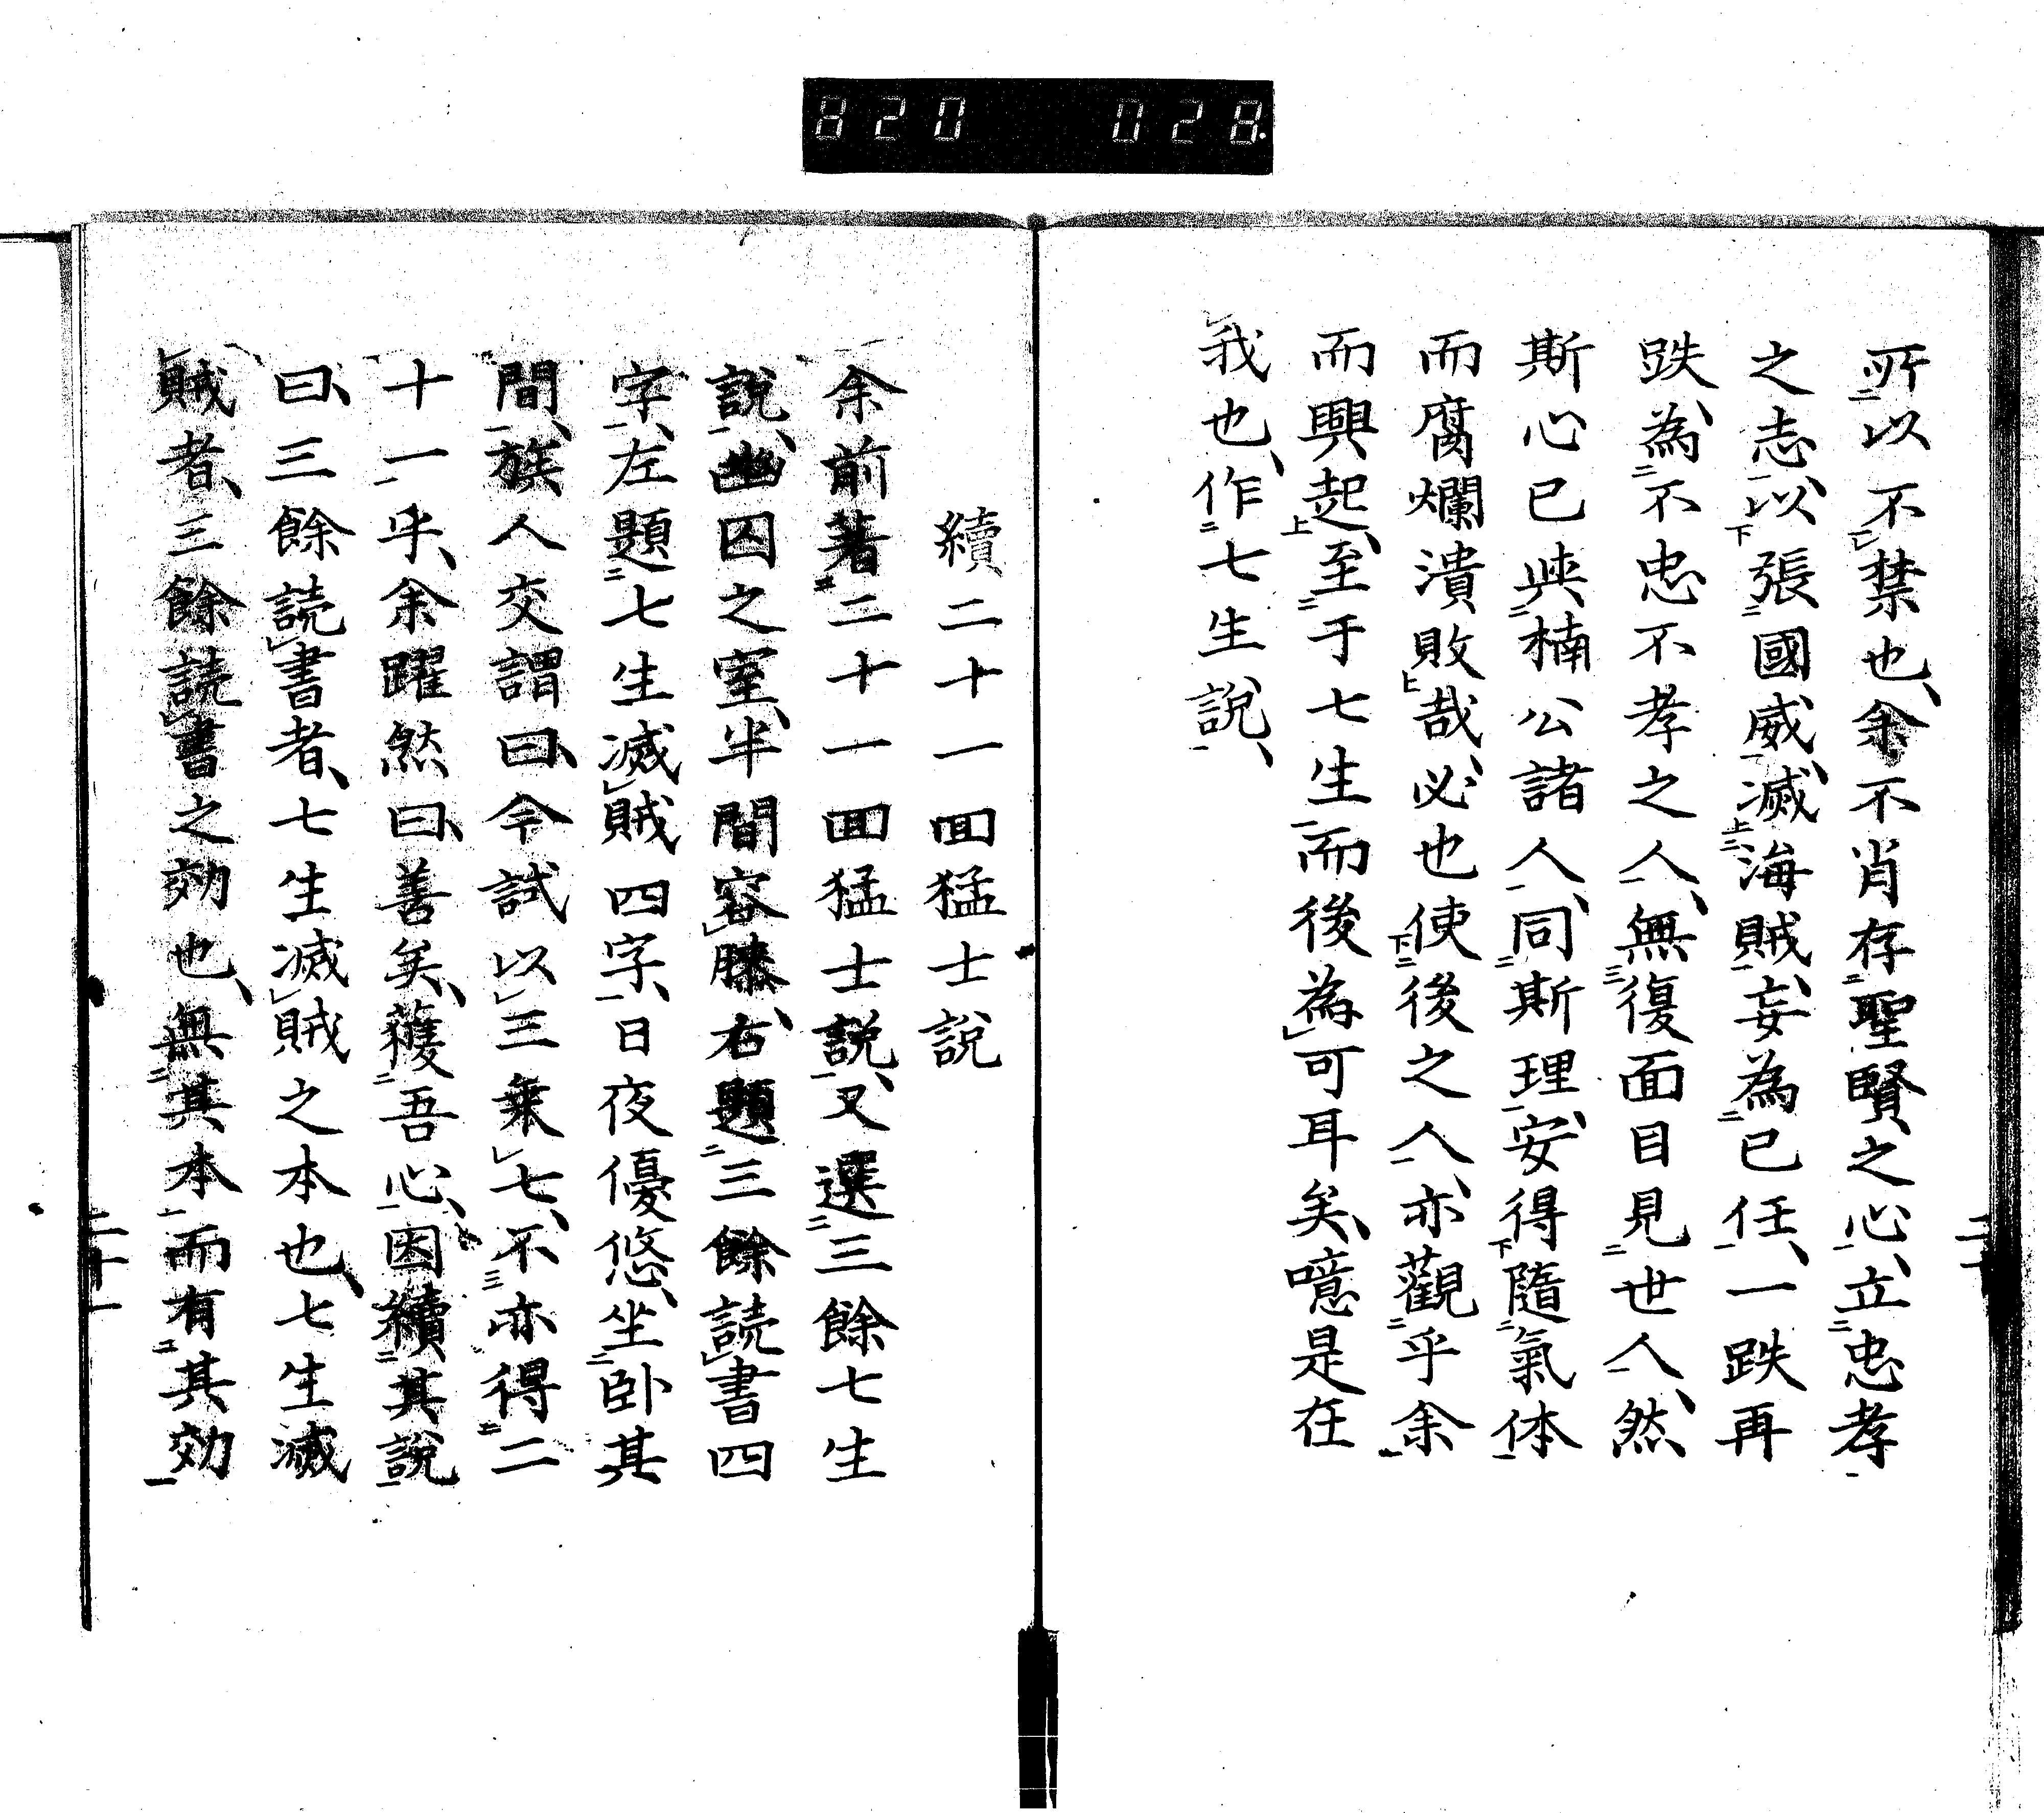 820 028
所以不禁也、余不肖存聖賢之心、立忠孝
之志、以張國威、滅海賊、妄為已任、一跌再
跌、為不忠不孝之人、無復面目見世人、然
斯心已與楠公諸人、同斯理、安得隨氣体
而腐爛潰敗哉、必也使後之人、亦觀乎余
而興起、至于七生而後為可耳矣、噫是在
我也、作七生說、
續二十一回猛士說
余前著二十一回猛士説、又選三餘七生
說、幽囚之室、半間容膝、右題三餘読書四
字、左題七生滅賊四字、日夜優悠、坐卧其
間、族人交謂曰、今試以三乗七、不亦得二
十一乎、余躍然曰、善矣、獲吾心、因續其説
曰、三餘読書者、七生滅賊之本也、七生滅
賊者、三餘読書之効也、無其本而有其効
二十一